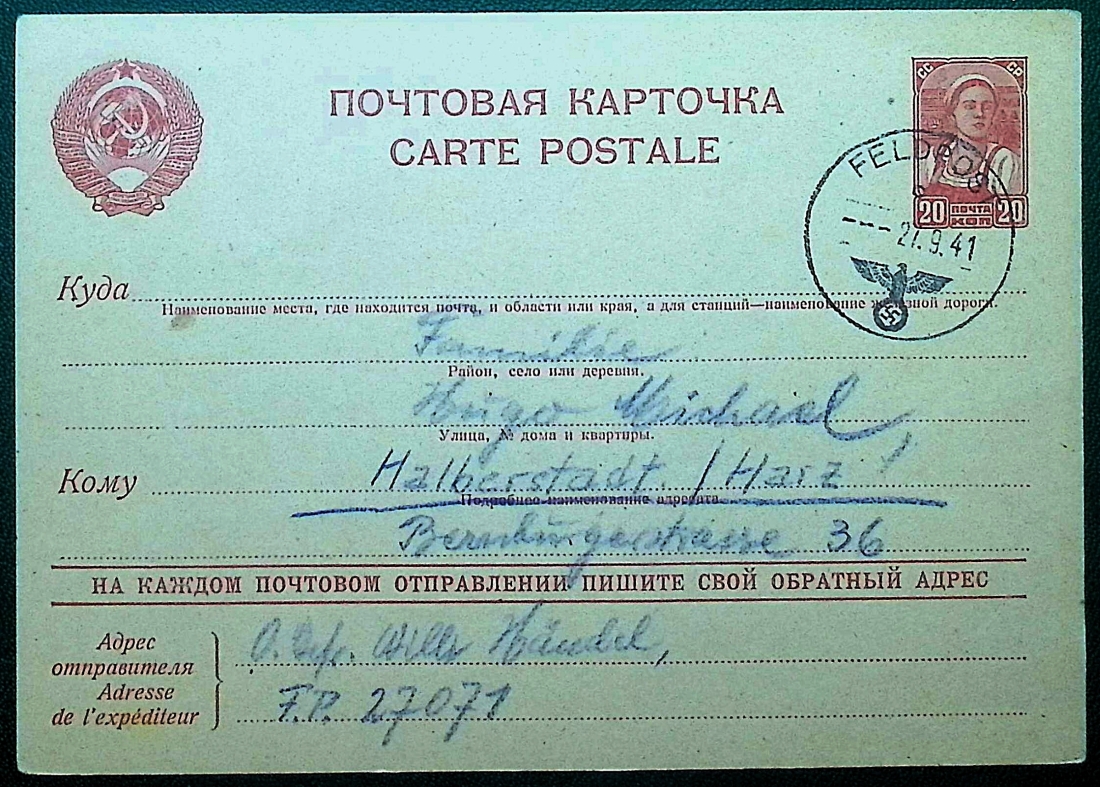 ПОЧТОВАЯ КАРТОЧКА
CARTE POSTALE
СС СР
20 ПОЧТА КОП 20
FELDPOST
27.9.41
Куда
Наименование места, где находится почта, и области или края, а для станций—наименование железной дороги.
Familie
Район, село или деревня.
Hugo Michael,
Улица, № дома и квартиры.
Кому
Halberstadt. / Harz !
Подробное наименование адресата
Bernburgerstrasse 36
НА КАЖДОМ ПОЧТОВОМ ОТПРАВЛЕНИИ ПИШИТЕ СВОЙ ОБРАТНЫЙ АДРЕС
Адрес
отправителя
Adresse
de l'expéditeur
O. Gefr. Willi Händel,
F.P. 27071